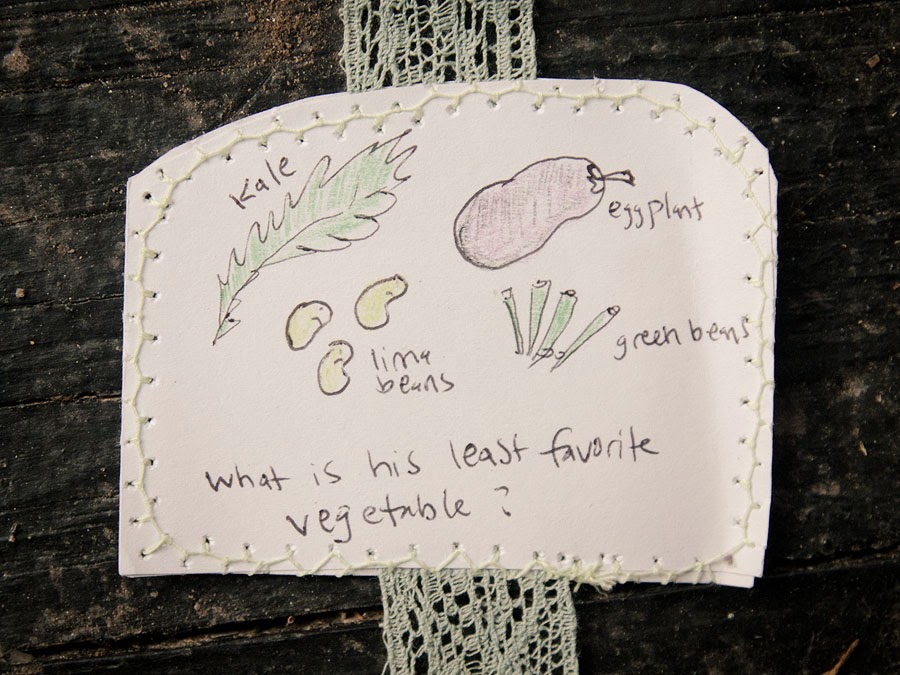 Kale
eggplant
lima
beans
green beans
what is his least favorite
vegetable?